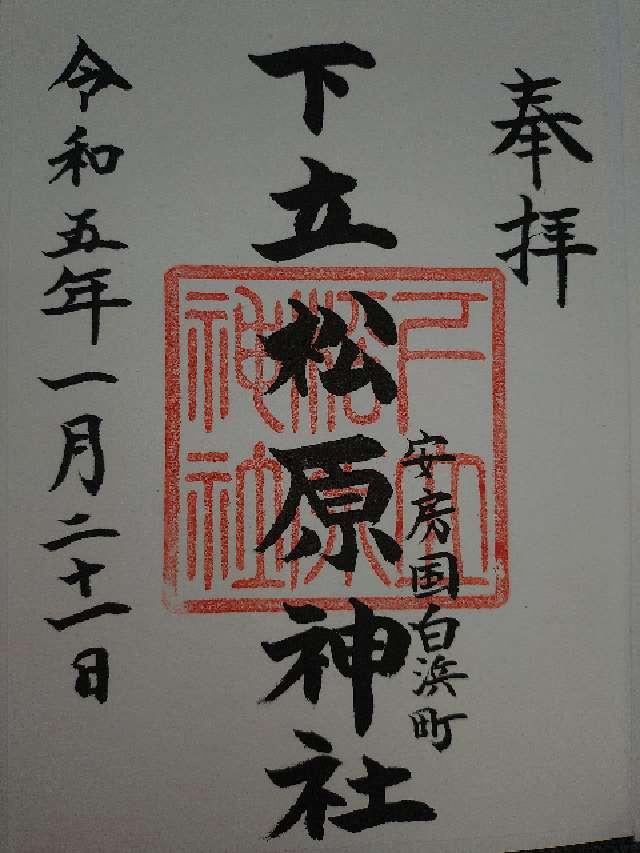 奉拝
安房国白浜町
下立松原神社
令和五年一月二十一日
下立
松原
神社